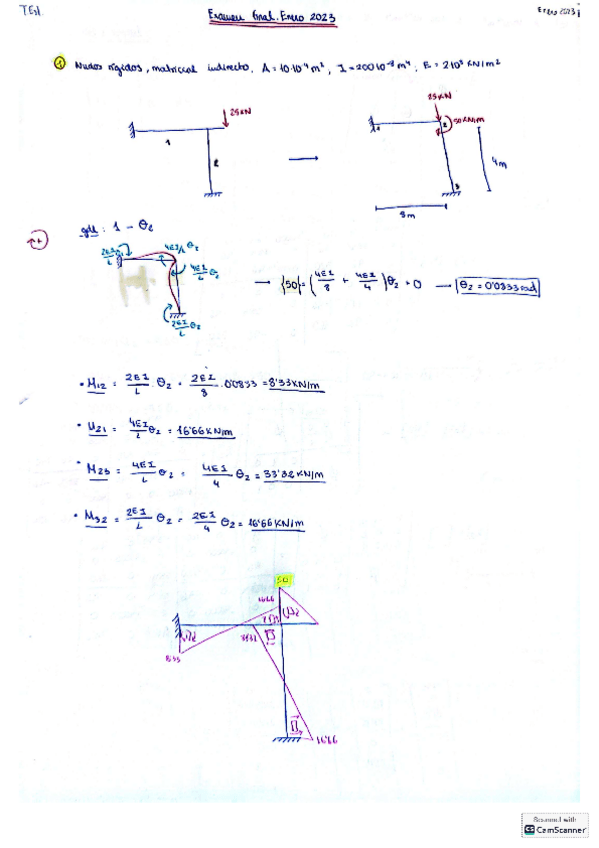 TEI.
Examen final. Enero 2023
Enero 2023
① Nudos rígidos, matricial indirecto, A = 10·10⁻⁴ m², I = 200·10⁻⁸ m⁴, E = 2·10⁸ KN/m²
25KN
1
2
25KN
50KN·m
2
3
4m
8m
gdl: 1 - θ₂
2EI/L θ₂
4EI/L θ₂
4EI/L θ₂
2EI/L θ₂
→ {50} = (4EI/8 + 4EI/4) θ₂ + 0 → θ₂ = 0'0833 rad
• M₁₂ = 2EI/L · θ₂ = 2EI/8 · 0'0833 = 8'33KN/m
• M₂₁ = 4EI/L θ₂ = 16'66KN/m
• M₂₃ = 4EI/L θ₂ = 4EI/4 θ₂ = 33'32KN/m
• M₃₂ = 2EI/L θ₂ = 2EI/4 θ₂ = 16'66KN/m
50
1666
8'33
1666
Scanned with
CS CamScanner